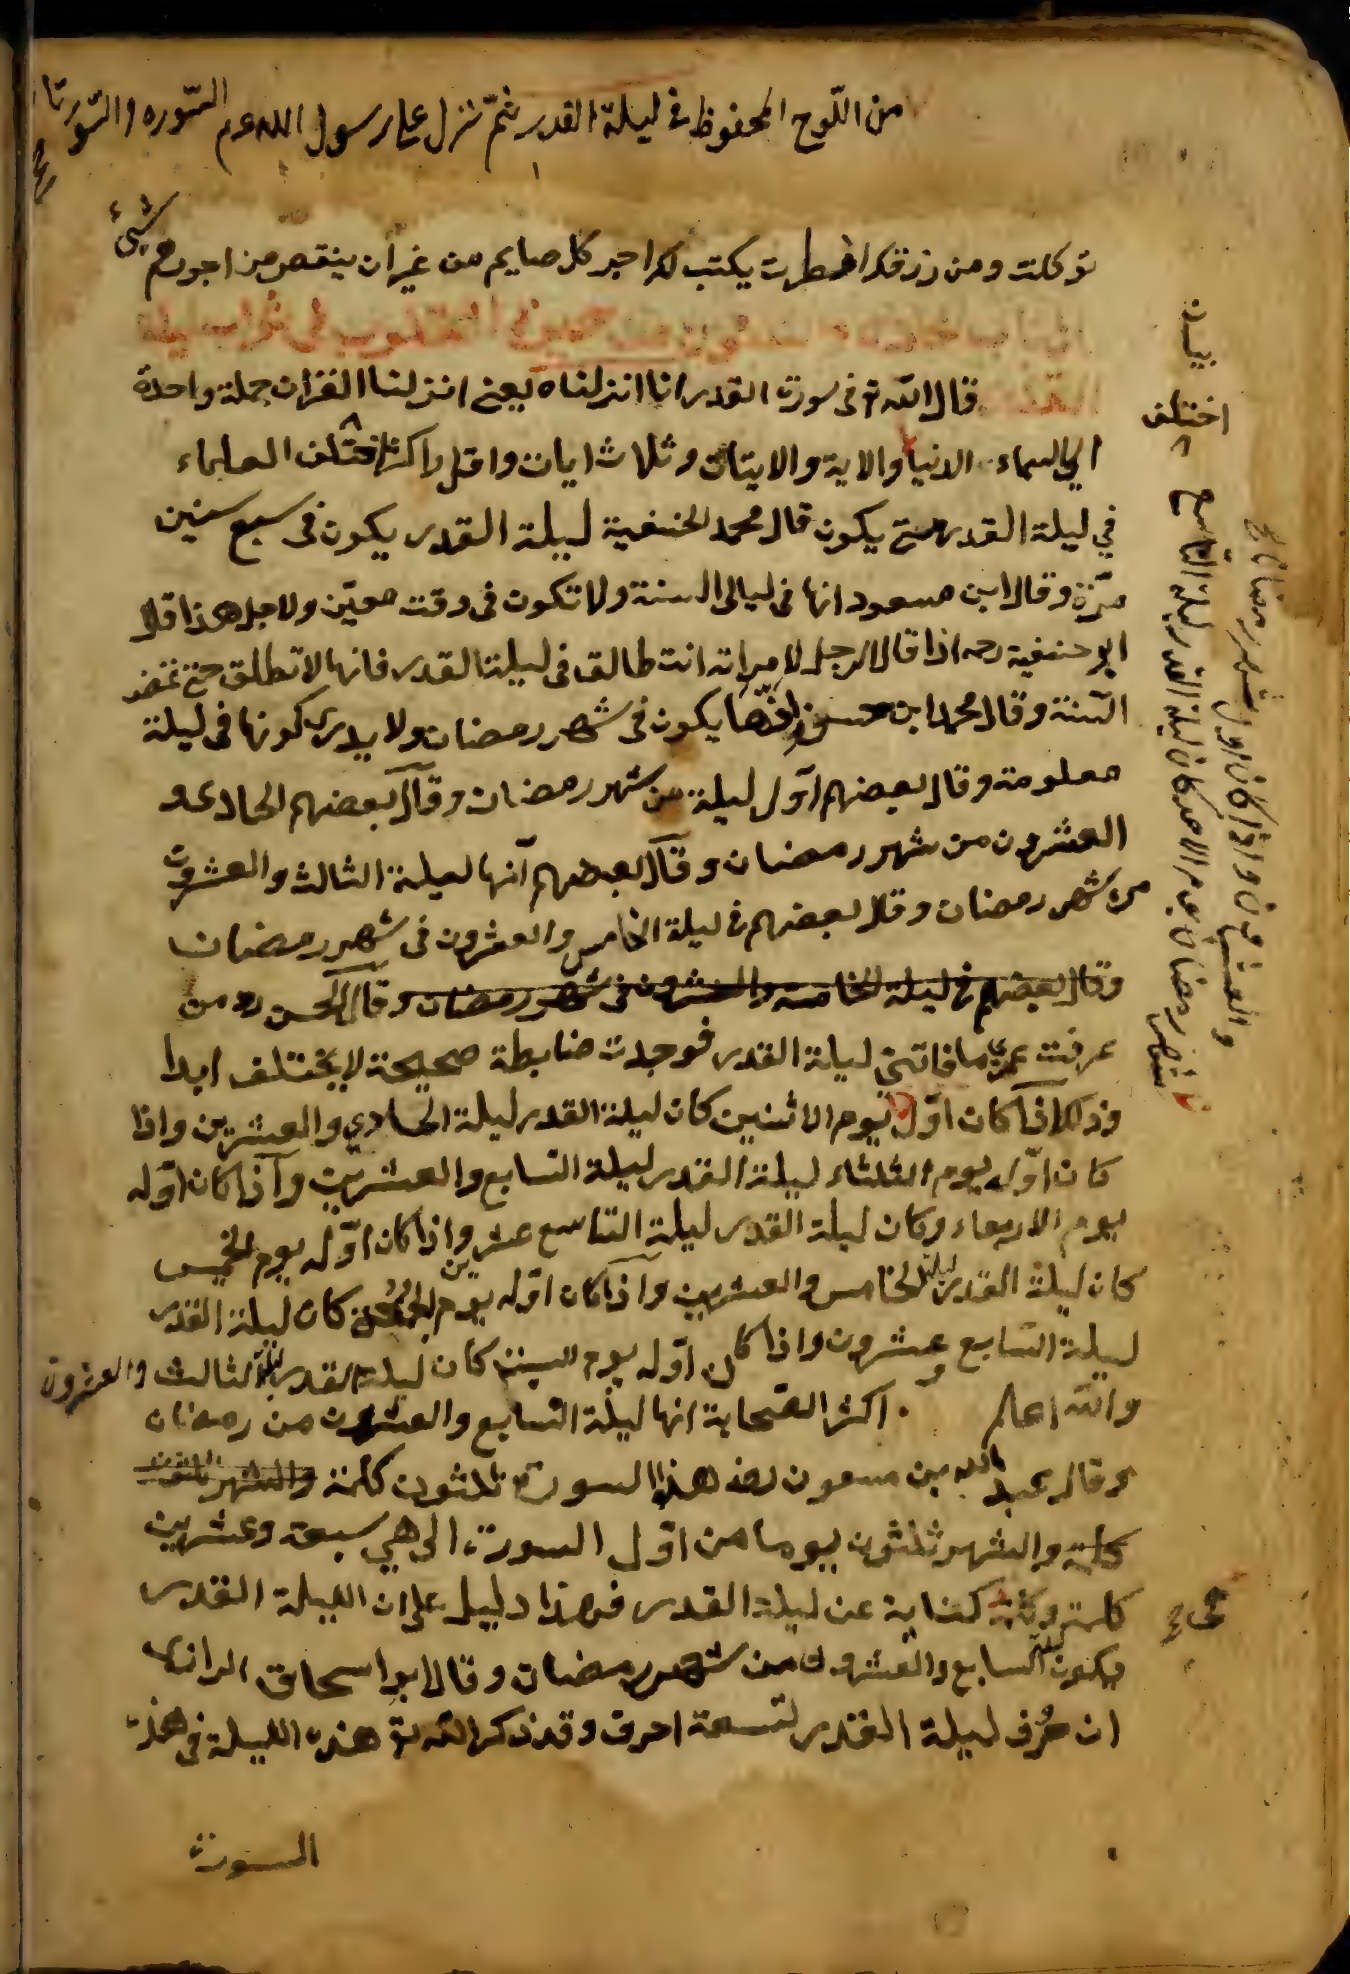 من اللّوح المحفوظ فى ليلة القدر ثمّ نزل على رسول الله عم السّوره والسّورتا
توكلت ومن رزقك افطرت يكتب لك اجر كل صايم من غير ان ينقص من اجورهم شئ
الباب فى ليلة
القدر قال الله تع فى سورة القدر انا انزلناه يعنى انزلنا القران جملة واحدة
الى السماء الدنيا والاية والايتان وثلاث ايات واقل واكثر اختلف العلماء
في ليلة القدر متى يكون قال محمد الحنفية ليلة القدر يكون فى سبع سنين
مرّة وقال ابن مسعود انها فى ليالى السنة ولا تكون فى وقت معيّن ولاجل هذا قال
ابو حنفية رحه اذا قال الرجل لامراته انت طالق فى ليلة القدر فانها لا تطلق حتى تمضى
السّنة وقال محمد ابن حسن انّها يكون فى شهر رمضان ولا يدرى كونها فى ليلة
معلومة وقال بعضهم اوّل ليلة من شهر رمضان وقال بعضهم الحادى و
العشرون من شهر رمضان وقال بعضهم انّها ليلة الثالث والعشرون
من شهر رمضان وقال بعضهم فى ليلة الخامس والعشرون فى شهر رمضان
وقال بعضهم فى ليلة الخامسة والعشرون فى شهر رمضان وقال الحسن ره من
عرفت عمري ما فاتتنى ليلة القدر فوجدت ضابطة صحيحة لا يختلف ابدا
وذلك اذا كان اوّل يوم الاثنين كان ليلة القدر ليلة الحادي والعشرين واذا
كان اوّله يوم الثلثاء ليلة القدر ليلة السابع والعشرين واذا كان اوّله
يوم الاربعاء وكان ليلة القدر ليلة التاسع عشر واذا كان اوّله يوم الخميس
كان ليلة القدر ليلة الخامس والعشرين واذا كان اوّله يوم الجمعة كان ليلة القدر
ليلة السّابع وعشرون واذا كان اوّله يوم السبت كان ليلة القدر ليلة الثالث والعشرون
والله اعلم اكثر الصّحابة انها ليلة السّابع والعشرون من رمضان
وقال عبد الله بن مسعود رضه هذا السورة ثلثون كلمة والشهر ثلثون
كلمة والشهر ثلثون يوما من اوّل السورة الى هي سبعة وعشرين
كلمة كناية عن ليلة القدر فهذا دليل على ان الليلة القدر
ويكون ليلة السابع والعشرون من شهر رمضان وقال ابو اسحاق الرازى
ان حرف ليلة القدر تسعة احرف وقد ذكر الله تع هذه الليلة فى هذه
السورة
بيان
اختلف
شهر رمضان يوم الاحد كان ليلة القدر ليلة التاسع
والعشرون واذا كان اول شهر رمضان